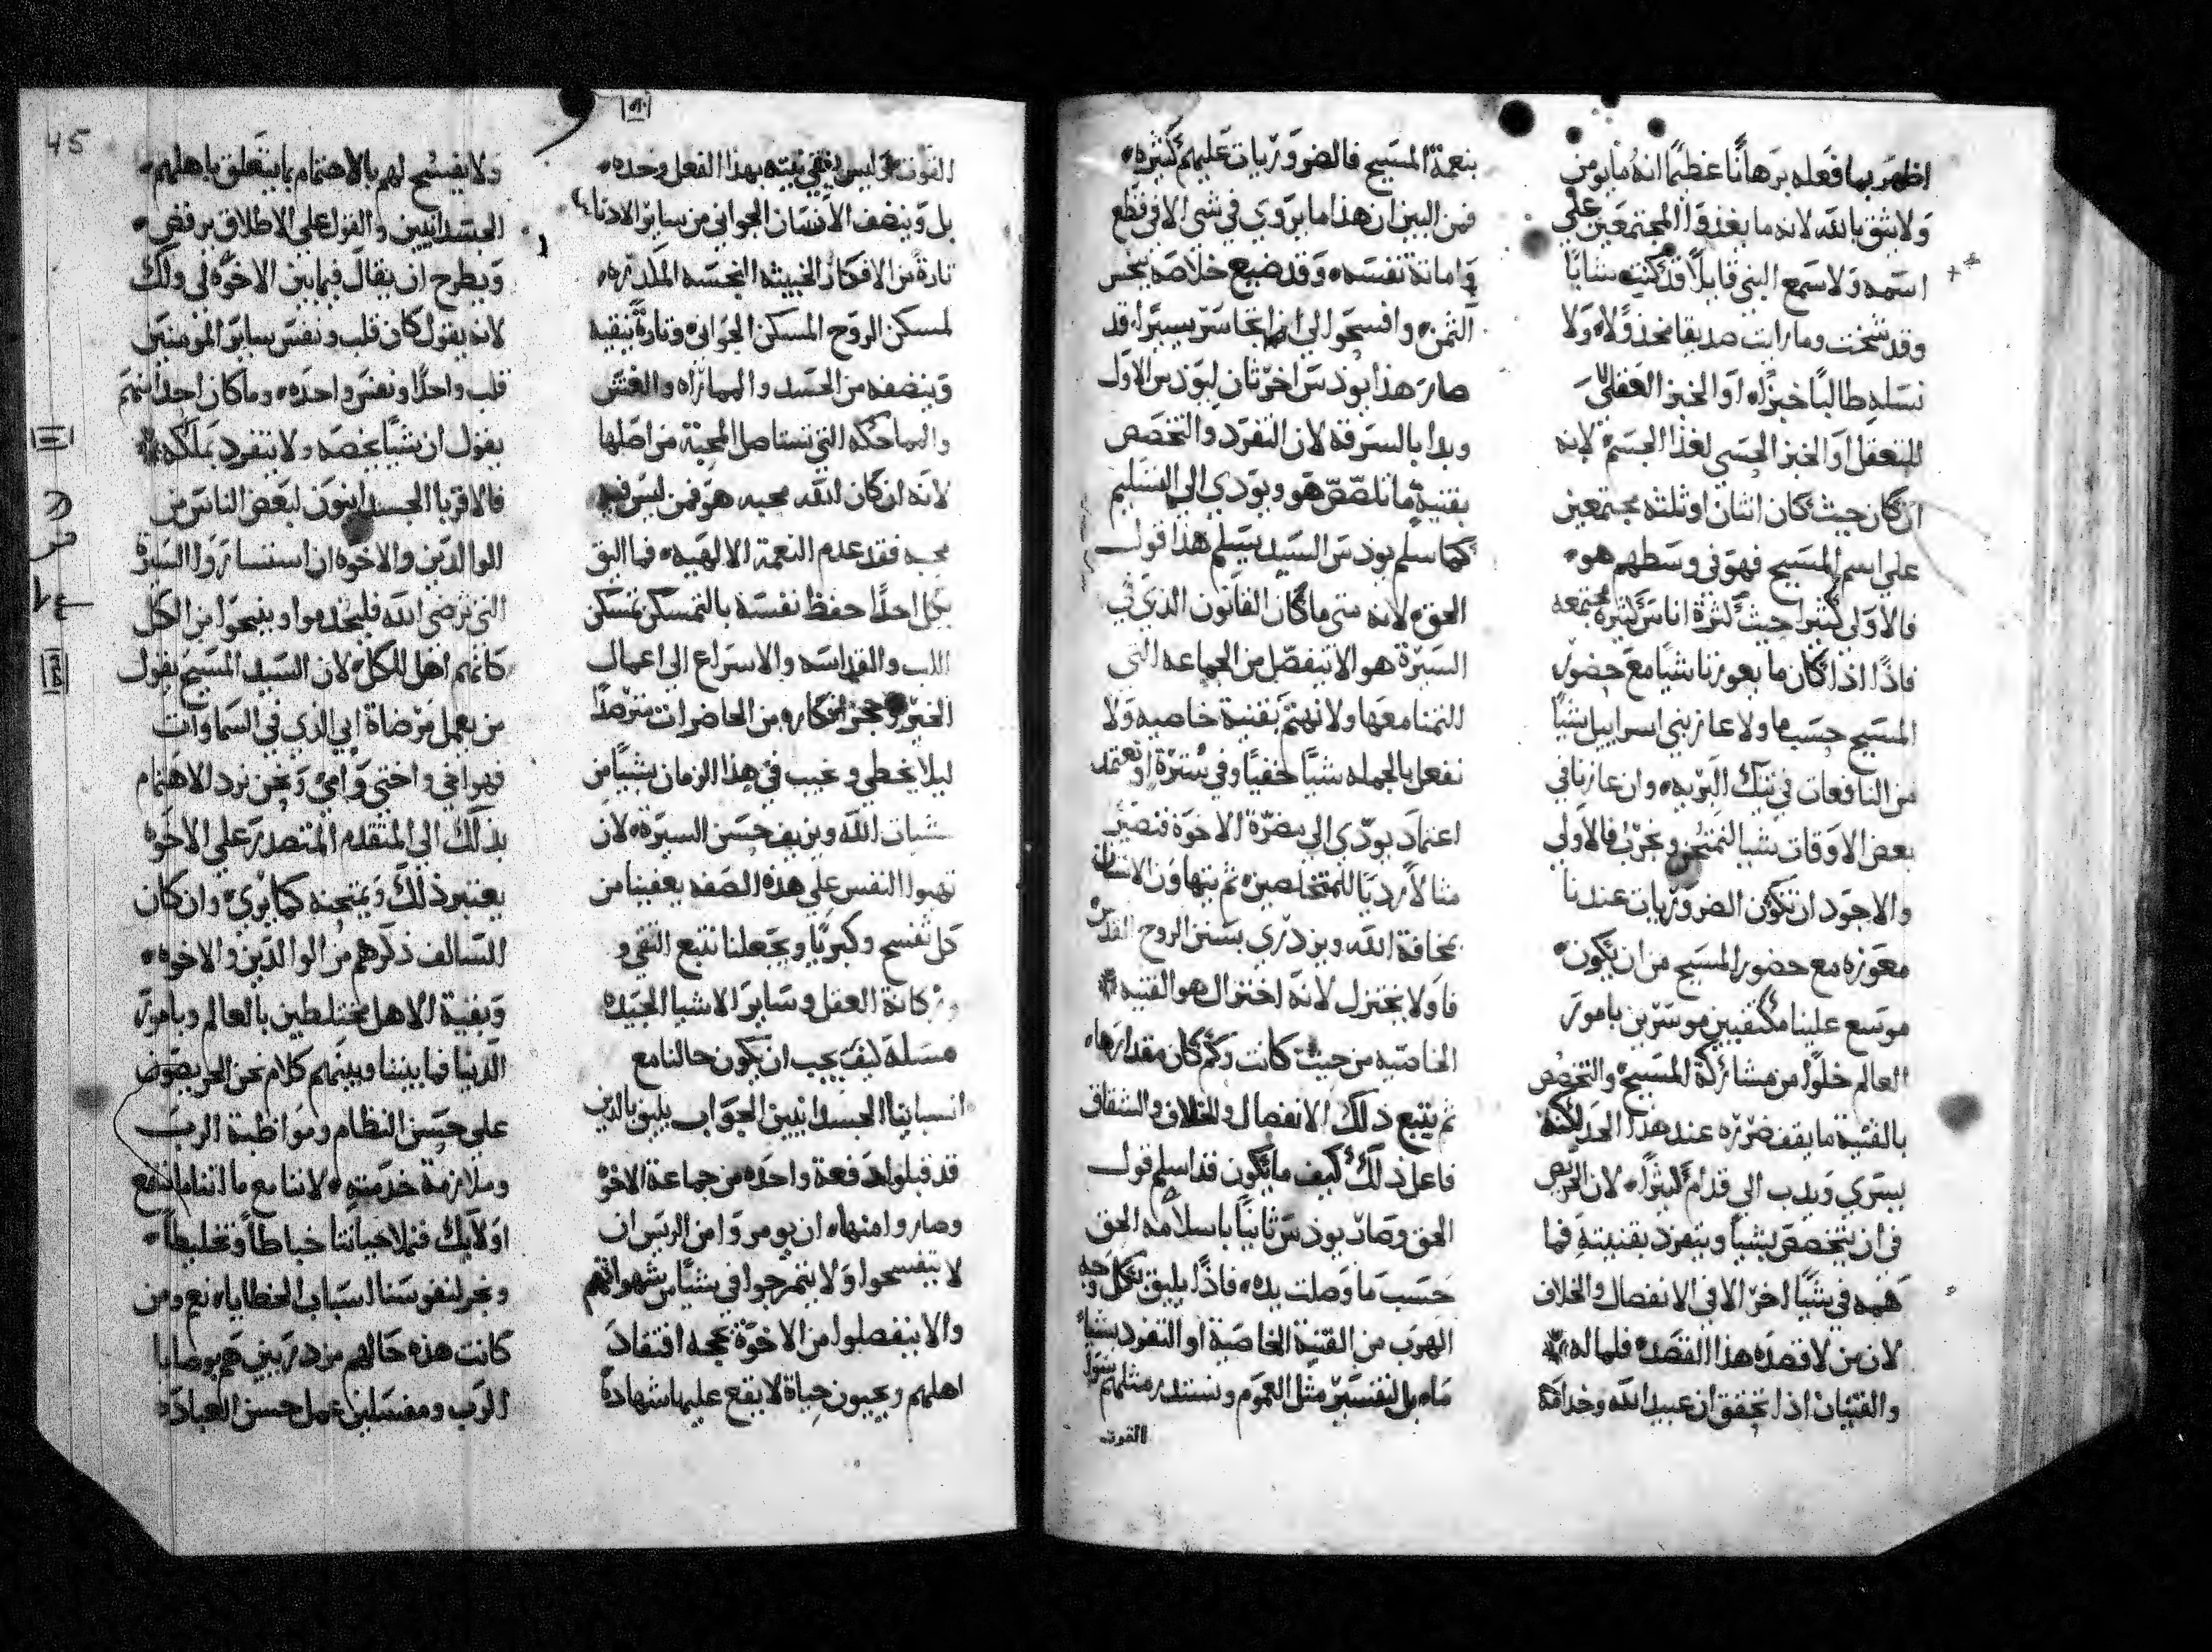 اظهر بما فعله برهانًا عظيمًا انه ما يومن
ولا يثق بالله لانه ما يغذوا المجتمعين علي
اسمه ولا سمع النبي قايلاً قد كنت شابًا
وقد شخت وما رايت صديقا مخذولاً ولا
نسله طالبًا خبزًا او الخبز العقلي
للتعقل او الخبز الحسي لغذا الجسم لانه
ان كان حيث كان اثنان او ثلثه مجتمعين
علي اسم المسيح فهو في وسطهم هو
فالاولي كثيرا حيث كثرة اناس كثيره مجتمعه
فاذًا اذا كان ما يعوزنا شيا مع حضور
المسيح حسب ما ولا عاز بني اسراييل شيًا
من النافعات في تيك البريه وان عازنا في
بعض الاوقات شيا لنمتحن ونجرب فالاولي
والاجود ان تكون الضروريات عندنا
معوزه مع حضور المسيح من ان يكون
موسع علينا مكتفيين موسرين بامور
العالم خلوًا من مشاركة المسيح والتخصص
بالقنيه ما يقف ضرره عند هذا الحد لكنه
يسري ويدب الي قدام كثيرًا لان الحريص
في ان يتخصص بشيا ويتفرد بقنيته فما
همه في شيًا اخر الا في الانفصال والخلاف
لان من لا قصده هذا القصد فلماله
والقتيان اذ اتحقق ان عبيد الله وخدامه
بنعمة المسيح فالضروريات عليهم كثيره
فمن البين ان هذا ما يروي في شي الا في قطع
واماتة نفسه وقد ضيع خلاصه ببخس
الثمن وافسحوا لي ان اتجاسر يسيرًا قد
صار هذا يودس اخر ثان ليودس الاول
وبدا بالسرقه لان التفرد والتخصص
بقنيه ما تلصص هو ويودي الي التسليم
كما سلم يودس السيد يسلم هذا قول
الحق لانه متي ما كان القانون الذي في
السيرة هو الا ينفصل من الجماعه التي
التمنا معها ولا نهتم بقنية خاصيه ولا
نفعل بالجمله شيًا خفيًا وفي سترة او نعتمد
اعتماد يودي الي مضرة الاخوة فنصير
مثالاً رديًا للمتخلصين ثم يتهاون الانسان
بمخافة الله ويزدري بسنن الروح القدس
فاولا يختزل لانه اختزال هو القنيه
الخاصيه من حيث كانت وكم كان مقدارها
ثم يتبع ذلك الانفصال والخلاف والشقاق
فاعل ذلك كيف ما يكون قد اسلم قول
الحق وصار يودس ثانيًا باسلامه الحق
حسب ما وصلت يده فاذًا يليق بكل وجه
الهرب من القنية الخاصية او التفرد بشيًا
ما بل لنقتسر مثل العموم ونستدر مثلهم بنول
القوت
القوت وليس ينقي بيته بهذا الفعل وحده
بل وينضف الانسان الجواني من ساير الادناس
تارة من الافكار الخبيثه النجسه المكدره
لمسكن الروح المسكن الجوانى وتارة ينقيه
وينضفه من الحسد والمماراه والغش
والمماحكه التي تستاصل المحبة من اصلها
لانه ان كان الله محبه هو فمن ليس فيه
محبه فقد عدم النعمة الالهيه فما اليق
بكل احدًا حفظ نفسه بالتمسكن بمسكن
الاب والقداسه والاسراع الي اعمال
الخير وحجز المكاره من الحاضرات مترصدًا
ليلا يخطي ويخيب في هذا الزمان بشيًا من
حسنات الله ويزيف حسن السيره لان
تهموا النفس علي هذه الصفه يعفينا من
كل تفسح وكبريًا ويجعلنا نتبع التقي و
وركانة العقل وساير الاشيا الجيده
مسلة كيف يجب ان يكون حالنا مع
انسباينا الجسدانيين الجواب يليق بالذين
قد قبلوا دفعة واحده من جماعة الاخوه
وصاروا منها ان يومروا من الريس ان
لا يتفسحوا ولا يتمرجوا في شيًا من شهواتهم
والا ينفصلوا من الاخوة بحجه افتقاد
اهلهم ويحيون حياة لا يقع عليها شهادة
45
ولا يفسح لهم بالاهتمام بما يتعلق باهلهم
الجسدانيين والقول علي الاطلاق يرفض
ويطرح ان يقال فيما بين الاخوه لي ولك
لانه يقول كان قلب ونفس ساير المومنين
قلب واحدًا ونفس واحده وما كان احدًا منهم
يقول ان شيًا يخصه ولا يتفرد بملكه
فالاقربا الجسدانيون لبعض الناس من
الوالدين والاخوه ان استساروا السيرة
التي ترضي الله فليخدموا وينيحوا من الكل
كانهم اهل الكل لان السيد المسيح يقول
من يعمل مرضاة ابي الذي في السماوات
فهو اخي واختي وامي ونحن نرد الاهتمام
بذلك الي المتقدم المتصدر علي الاخوه
يعتبر ذلك ويمتحنه كما يري وان كان
السالف ذكرهم من الوالدين والاخوه
وبقية الاهل مختلطين بالعالم وبامور
الدنيا فما بيننا وبينهم كلام نحن الحريصون
علي حسن النظام ومواظبة الرب
وملازمة خدمته لاننا مع ما اننا ما ننفع
اولايك فنملا حياتنا خباطاً وتخليطاً
ونجر لنفوسنا اسباب الخطايا نع ومن
كانت هذه حالهم مزدريين هم بوصايا
الرب ومفسدين عمل حسن العباده